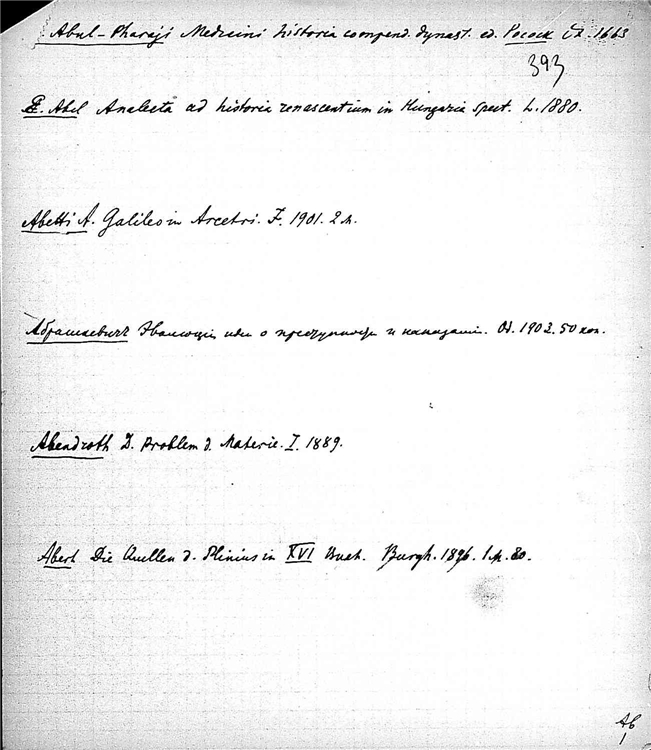 Abul-Pharaji Medicini historia compend. dynast. ed. Pocock 1663
393
E. Abel Analecta ad historia renascentium in Hungaria spect. L. 1880.
Abetti A. Galileo in Arcetri. F. 1901. 2 м.
Абрашкевичъ Эволюція идеи о преступленіи и наказаніи. Од. 1903. 50 коп.
Abendroth D. Problem d. Materie. I. 1889.
Abert Die Quellen d. Plinius in XVI Buch. Burgh. 1896. 1 м. 80.
Ab
1